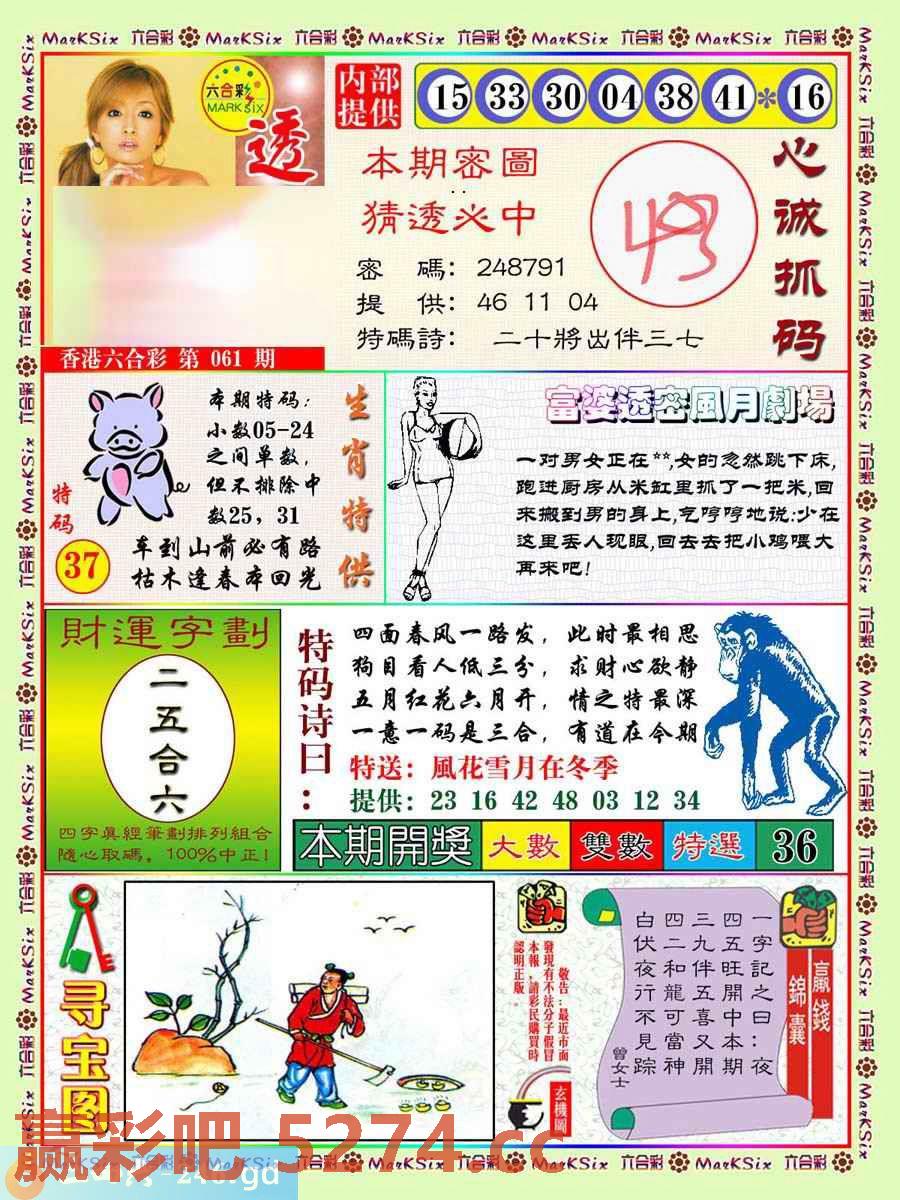 MarKSix 六合彩 MarKSix 六合彩 MarKSix 六合彩 MarKSix 六合彩 MarKSix 六合彩
六合彩
MARK SIX
透
内部
提供
15 33 30 04 38 41 * 16
本期密圖
猜透必中
密 碼: 248791
提 供: 46 11 04
特碼詩: 二十將出伴三七
49
心诚抓码
香港六合彩 第 061 期
特码
37
本期特码:
小数05-24
之间单数,
但不排除中
数25, 31
车到山前必有路
枯木逢春本回光
生肖特供
富婆透密風月劇場
一对男女正在**,女的忽然跳下床,
跑进厨房从米缸里抓了一把米,回
来搬到男的身上,气哼哼地说:少在
这里丢人现眼,回去去把小鸡喂大
再来吧!
財運字劃
二五合六
四字真經筆劃排列組合
隨心取碼。100%中正!
特码诗曰:
四面春风一路发, 此时最相思
狗目看人低三分, 求财心欲静
五月红花六月开, 情之特最深
一意一码是三合, 有道在今期
特送: 風花雪月在冬季
提供: 23 16 42 48 03 12 34
本期開獎 大數 雙數 特選 36
寻宝图
敬告:最近市面
發現有不法分子假冒
本報,請彩民購買時
認明正版。
玄機圖
一字記之曰:夜
四五旺開中本期
三九伴五喜又開
四二和龍可當神
白伏夜行不見踪
曾女士
贏錢
錦囊
赢彩吧.5274.cc
MarKSix 六合彩 MarKSix 六合彩 MarKSix 六合彩